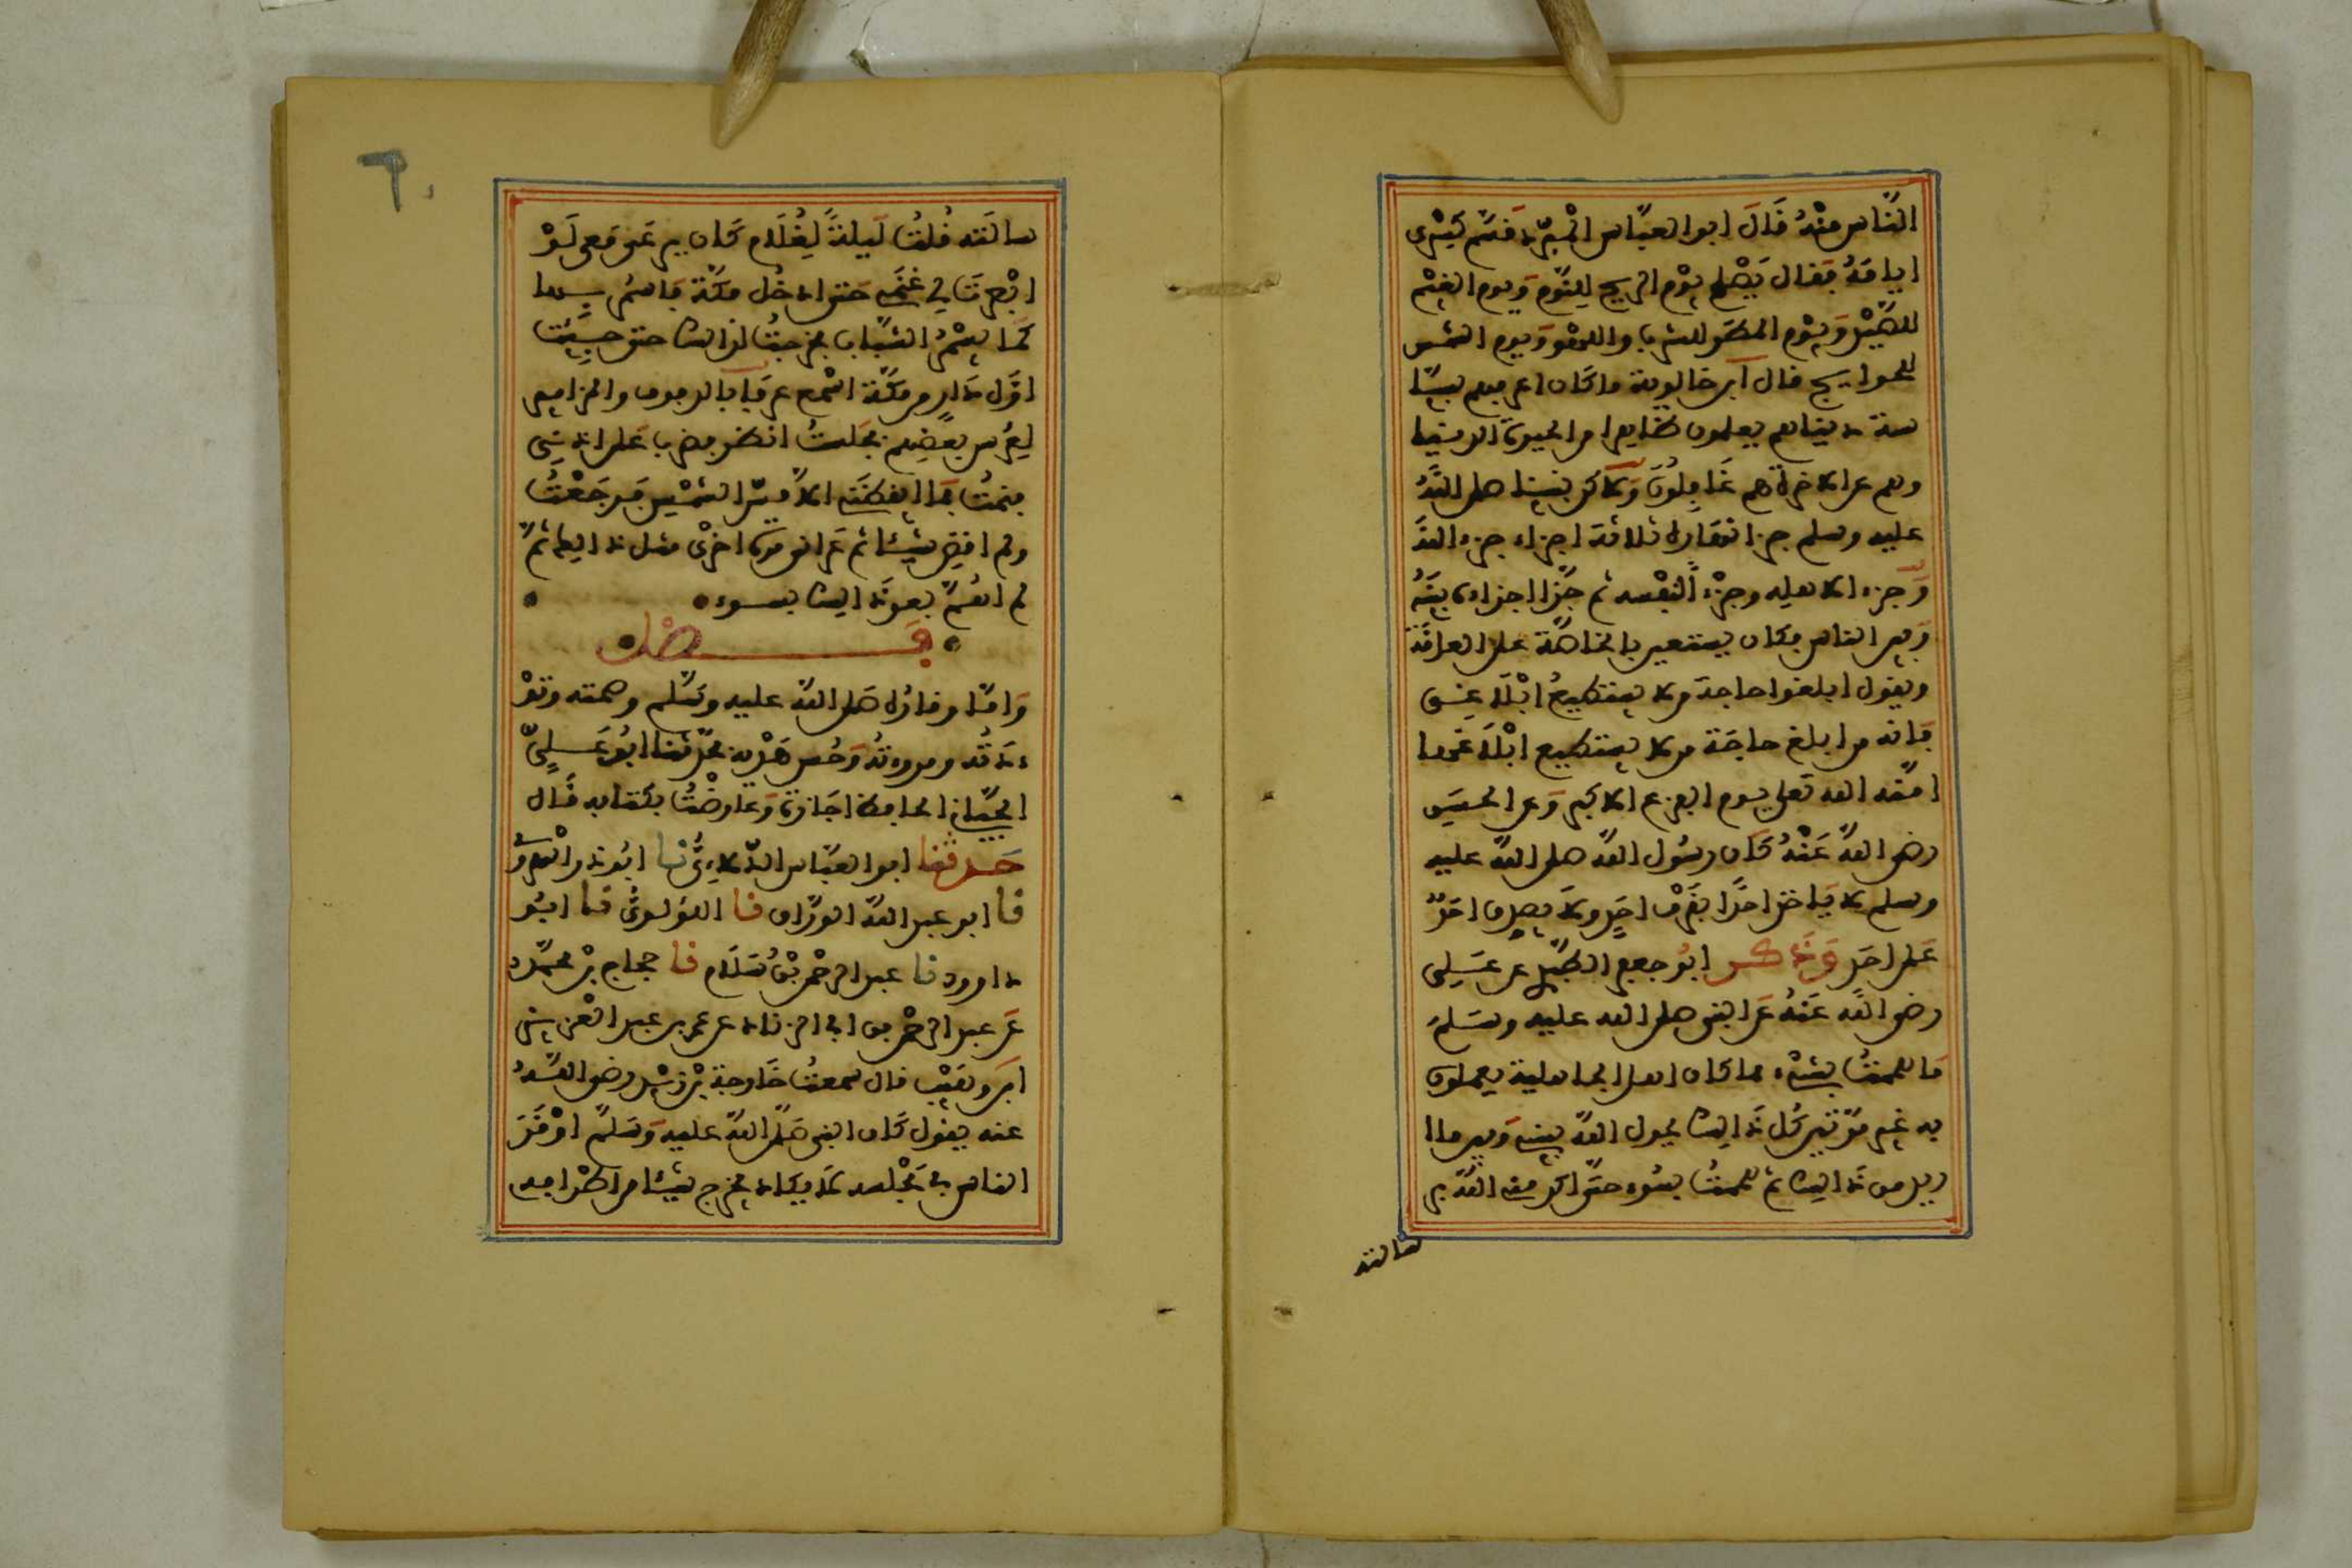 الناس منهُ قَالَ ابو العبّاس المبرّد قسّم كِسْرى
ايامَهُ فقال يَصْلح يوْم الريح للنّوم وَيوم الغيْم
للصّيْد وَيوْم المطَر للشرب واللهْو وَيوم الشمس
للحوايج قال ابن خالويه ما كَان اعرفهم بسيَا
سة دنياهم يعلمون ظاهرا من الحيوة الدنيا
وهم عن الاخرة هم غَافِلُونَ وَلاكن نبينا صلى اللهُ
عليه وسلم جزا نهاره ثلاثة اجزاء جزء للهَ
وَجزء لاهله وجزْءًا لنفْسه ثم جزّا جزءه بينَهُ
وَبين الناس فكان يستعين بالخاصّة على العامَّة
ويقول ابلغوا حاجة من لا يستطيعُ ابْلَاغِى
فَانه من ابلغ حاجَة من لا يستطيع ابْلَاغَها
امنّه الله تعلى يوم الفزع الاكبر وَعن الحسَنِ
رضى اللهُ عَنْهُ كَان رسُول اللهَ صلى اللهُ عليه
وسلم لا يَاخذ احَدًا بقَرْف احَدٍ ولَا يصدق احَدًا
عَلى احَدٍ وَذَكـر ابُو جعفر الطّبرى عن عَلى
رضى اللهُ عَنهُ عَن النبى صلى الله عليه وسَلمَ
مَا هممتُ بشىْء مما كان اهل الجاهلية يعملون
به غير مرّتين كُل ذَالك يحول اللهُ بينى وَبين ما ا
ريد من ذَالك ثم هممتُ بسُوء حتّى اكرمنى اللهُ بر
سالته
٦٠
سالَته قُلتُ لَيلةً لِغُلَام كَان يرعَى مَعى لَوْ
ابْصرتَ لى غنَمى حتى ادخُل مكَّة فَاسْمُر بها
كَمَا يسْمُرُ الشّبَاب فخرجتُ لذالك حتى جِئت
اوّل دَارٍ من مكّة اسْمع عزفًا بالدفوف والمزامير
لِعُرْس بعْضِهم فجَلستُ انظر فضرب عَلى اذنى
فنمتُ فَمَا ايقظنى الاّ مسّ الشمْسِ فَرجَعْتُ
ولم اقضِ شيئا ثم عَرانى مرة اخرْى مثل ذالك ثمّ
لم اهُمّ بعدَ ذالك بسوء
فَـــــــصْل
وَامّا وقارُه صَلى اللهُ عليه وسَلم وصمته وتوْ
ءَدَتُه ومروءتُه وَحُسن هَدْيه فحدّثنا ابُو عَـلىّ
الجيّانى الحافظ اجَازةً وَعَارضْتُ بكتابه قَال
حَـدثنا ابو العبّاس الدّلاءِىُّ نا ابُو ذر الهروىُّ
نا ابو عبد اللهَ الورّاق نا اللؤلوىُّ نا ابُو
داوود نا عبد الرحْمن بْنُ سَلَام نا حجاج بْن محمّد
عَن عبد الرحْمن بن ابى الزناد عن عمر بن عبد العزيز
ابن وهَيْب قال سمعتُ خَارجة بْن زيْد رضى اللهُ
عنه يقول كَان النبى صَلى اللهُ عليه وَسَلم اوْقَرَ
الناس فى مَجْلسه لَا يكاد يخرج شيئا من اطرافه